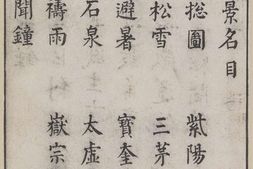 景名目
捴圖　紫陽
松雪　三茅
避暑　寳奎
石泉　太虚
禱雨　嶽宗
聞鐘